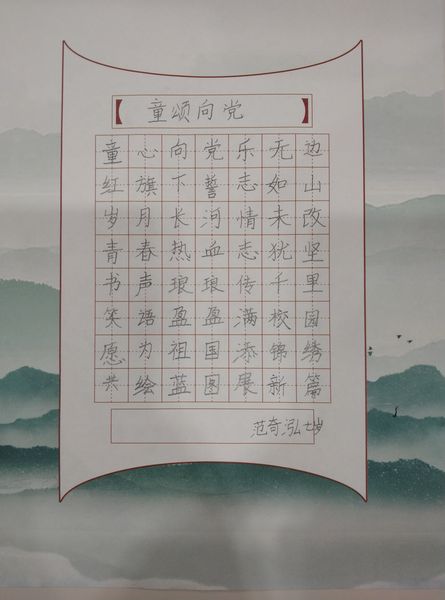 【童颂向党】
童心向党乐无边
红旗下誓志如山
岁月长河情未改
青春热血志犹坚
书声琅琅传千里
笑语盈盈满校园
愿为祖国添锦绣
共绘蓝图展新篇
范奇泓 七岁